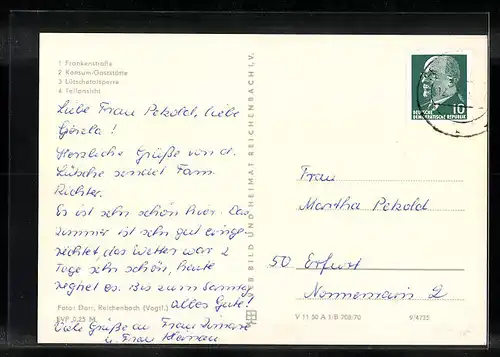 1 Frankenstraße
2 Konsum/Gaststätte
3 Lütschetalsperre
4 Teilansicht
Liebe Frau Petzold, liebe
Gisela!
Herzliche Grüße von d.
Lütsche sendet Fam.
Richter.
Es ist sehr schön hier. Das
Zimmer ist sehr gut einge-
richtet, das Wetter war 2
Tage sehr schön, heute
regnet es. Bis zum Sonntag
alles Gute!
Viele Grüße an Frau
u. Frau
Foto: Darr, Reichenbach (Vogtl.)
EVP 0,25 M
BILD UND HEIMAT REICHENBACH I. V.
10
DEUTSCHE
DEMOKRATISCHE REPUBLIK
Frau
Martha Petzold
50 Erfurt
Nonnenrain 2
V 11 50 A 1/B 708/70
9/4735